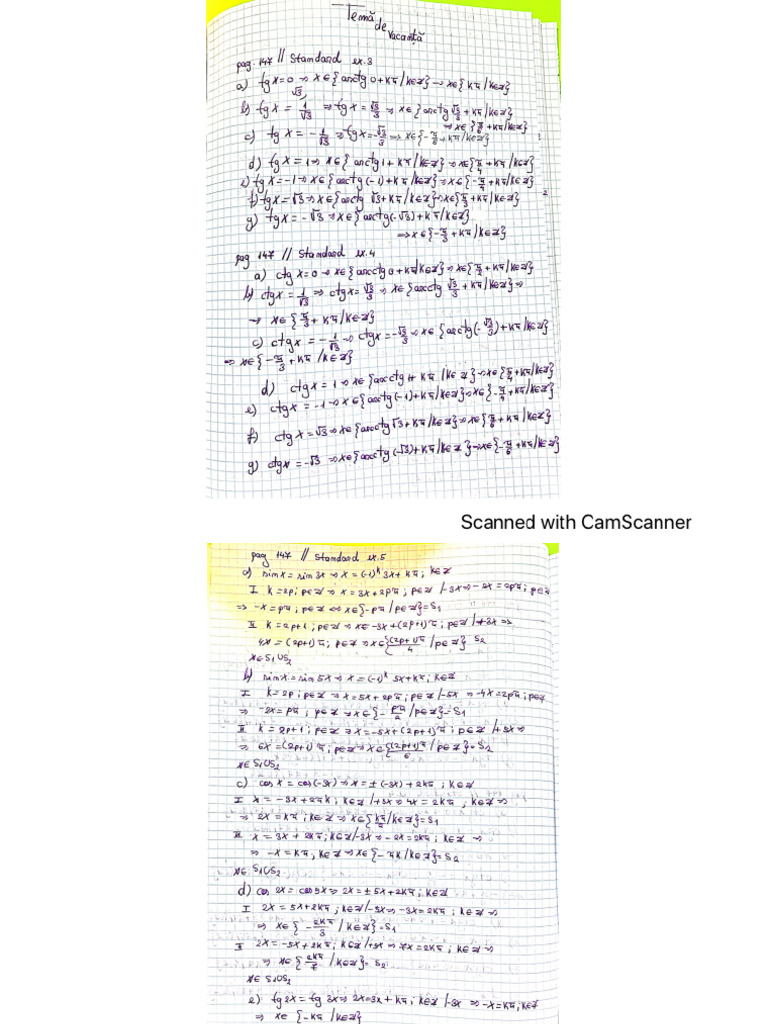 Temă
de
vacanță
pag. 147 // Standard ex.3
a) tg x = 0 ⇒ x ∈ {arctg 0 + kπ / k∈Z} ⇒ x ∈ {kπ / k∈Z}
b) tg x = 1/√3 ⇒ tg x = √3/3 ⇒ x ∈ {arctg √3/3 + kπ / k∈Z}
⇒ x ∈ {π/6 + kπ / k∈Z}
c) tg x = -1/√3 ⇒ tg x = -√3/3 ⇒ x ∈ {-π/6 + kπ / k∈Z}
d) tg x = 1 ⇒ x ∈ {arctg 1 + kπ / k∈Z} ⇒ x ∈ {π/4 + kπ / k∈Z}
e) tg x = -1 ⇒ x ∈ {arctg (-1) + kπ / k∈Z} ⇒ x ∈ {-π/4 + kπ / k∈Z}
f) tg x = √3 ⇒ x ∈ {arctg √3 + kπ / k∈Z} ⇒ x ∈ {π/3 + kπ / k∈Z}
g) tg x = -√3 ⇒ x ∈ {arctg (-√3) + kπ / k∈Z}
⇒ x ∈ {-π/3 + kπ / k∈Z}
pag 147 // Standard ex.4
a) ctg x = 0 ⇒ x ∈ {arcctg 0 + kπ / k∈Z} ⇒ x ∈ {π/2 + kπ / k∈Z}
b) ctg x = 1/√3 ⇒ ctg x = √3/3 ⇒ x ∈ {arcctg √3/3 + kπ / k∈Z} ⇒
⇒ x ∈ {π/3 + kπ / k∈Z}
c) ctg x = -1/√3 ⇒ ctg x = -√3/3 ⇒ x ∈ {arcctg (-√3/3) + kπ / k∈Z}
⇒ x ∈ {-π/3 + kπ / k∈Z}
d) ctg x = 1 ⇒ x ∈ {arcctg 1 + kπ / k∈Z} ⇒ x ∈ {π/4 + kπ / k∈Z}
e) ctg x = -1 ⇒ x ∈ {arcctg (-1) + kπ / k∈Z} ⇒ x ∈ {-π/4 + kπ / k∈Z}
f) ctg x = √3 ⇒ x ∈ {arcctg √3 + kπ / k∈Z} ⇒ x ∈ {π/6 + kπ / k∈Z}
g) ctg x = -√3 ⇒ x ∈ {arcctg (-√3) + kπ / k∈Z} ⇒ x ∈ {-π/6 + kπ / k∈Z}
Scanned with CamScanner
pag 147 // Standard ex.5
a) sin x = sin 3x ⇒ x = (-1)^k 3x + kπ ; k∈Z
I k = 2p ; p∈Z ⇒ x = 3x + 2pπ ; p∈Z /-3x ⇒ -2x = 2pπ ; p∈Z
⇒ -x = pπ ; p∈Z ⇔ x ∈ {-pπ / p∈Z} = S1
II k = 2p+1 ; p∈Z ⇒ x = -3x + (2p+1)π ; p∈Z /+3x ⇒
4x = (2p+1)π ; p∈Z ⇒ x ∈ {(2p+1)π/4 / p∈Z} S2
x∈ S1∪S2
b) sin x = sin 5x ⇒ x = (-1)^k 5x + kπ ; k∈Z
I k = 2p ; p∈Z ⇒ x = 5x + 2pπ ; p∈Z /-5x ⇒ -4x = 2pπ ; p∈Z
⇒ -2x = pπ ; p∈Z ⇒ x ∈ {-pπ/2 / p∈Z} = S1
II k = 2p+1 ; p∈Z ⇒ x = -5x + (2p+1)π ; p∈Z /+5x ⇒
⇒ 6x = (2p+1)π ; p∈Z ⇒ x ∈ {(2p+1)π/6 / p∈Z} = S2
x∈ S1∪S2
c) cos x = cos(-3x) ⇒ x = ±(-3x) + 2kπ ; k∈Z
I x = -3x + 2πk ; k∈Z /+3x ⇒ 4x = 2kπ ; k∈Z ⇒
⇒ 2x = kπ ; k∈Z ⇒ x ∈ {kπ/2 / k∈Z} = S1
II x = 3x + 2kπ ; k∈Z /-3x ⇒ -2x = 2kπ ; k∈Z ⇒
⇒ -x = kπ, k∈Z ⇒ x ∈ {-πk / k∈Z} = S2
x∈ S1∪S2
d) cos 2x = cos 5x ⇒ 2x = ±5x + 2kπ ; k∈Z
I 2x = 5x + 2kπ ; k∈Z /-5x ⇒ -3x = 2kπ ; k∈Z ⇒
⇒ x ∈ {-2kπ/3 / k∈Z} = S1
II 2x = -5x + 2kπ ; k∈Z /+5x ⇒ 7x = 2kπ ; k∈Z ⇒
⇒ x ∈ {2kπ/7 / k∈Z} = S2
x∈ S1∪S2
e) tg 2x = tg 3x ⇒ 2x = 3x + kπ ; k∈Z /-3x ⇒ -x = kπ ; k∈Z
⇒ x ∈ {-kπ / k∈Z}